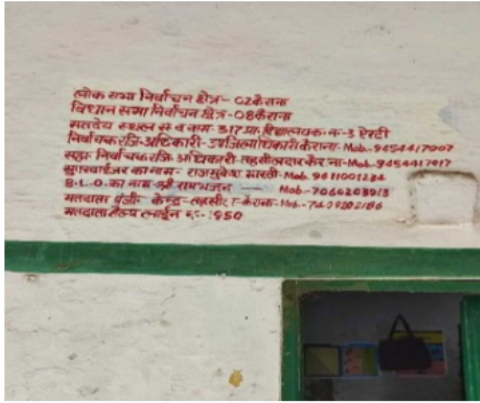 लोक सभा निर्वाचन क्षेत्र- 02 कैराना
विधान सभा निर्वाचन क्षेत्र-08 कैराना
मतदेय स्थल सं व नाम- 317 प्रा. विद्यालय क.न.-3 ऐरटी
निर्वाचक रजि. अधिकारी- उपजिलाधिकारी कैराना- Mob.-9454417007
सहा० निर्वाचक रजि. अधिकारी तहसीलदार कैराना-Mob-9454417017
सुपरवाईजर का नाम- राजमुकेश Mob. 9811001234
B.L.O. का नाम श्री रामभजन — Mob-7060203913
मतदाता पंजी० केन्द्र- तहसील कैराना- Mob.
मतदाता हैल्प लाईन नं०-1950